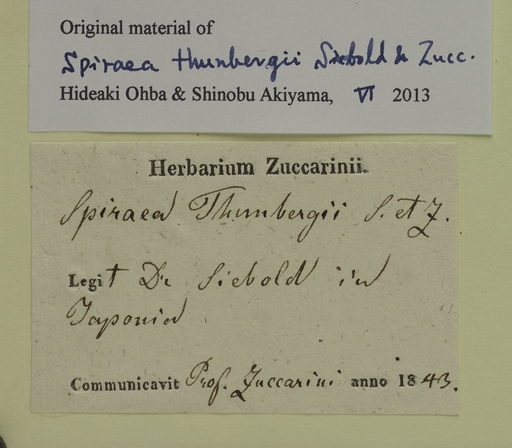 Original material of
Spiraea thunbergii Siebold & Zucc.
Hideaki Ohba & Shinobu Akiyama, VI 2013
Herbarium Zuccarinii.
Spiraea Thunbergii S. et Z.
Legit Dr Siebold in
Japonia
Communicavit Prof. Zuccarini anno 1843.